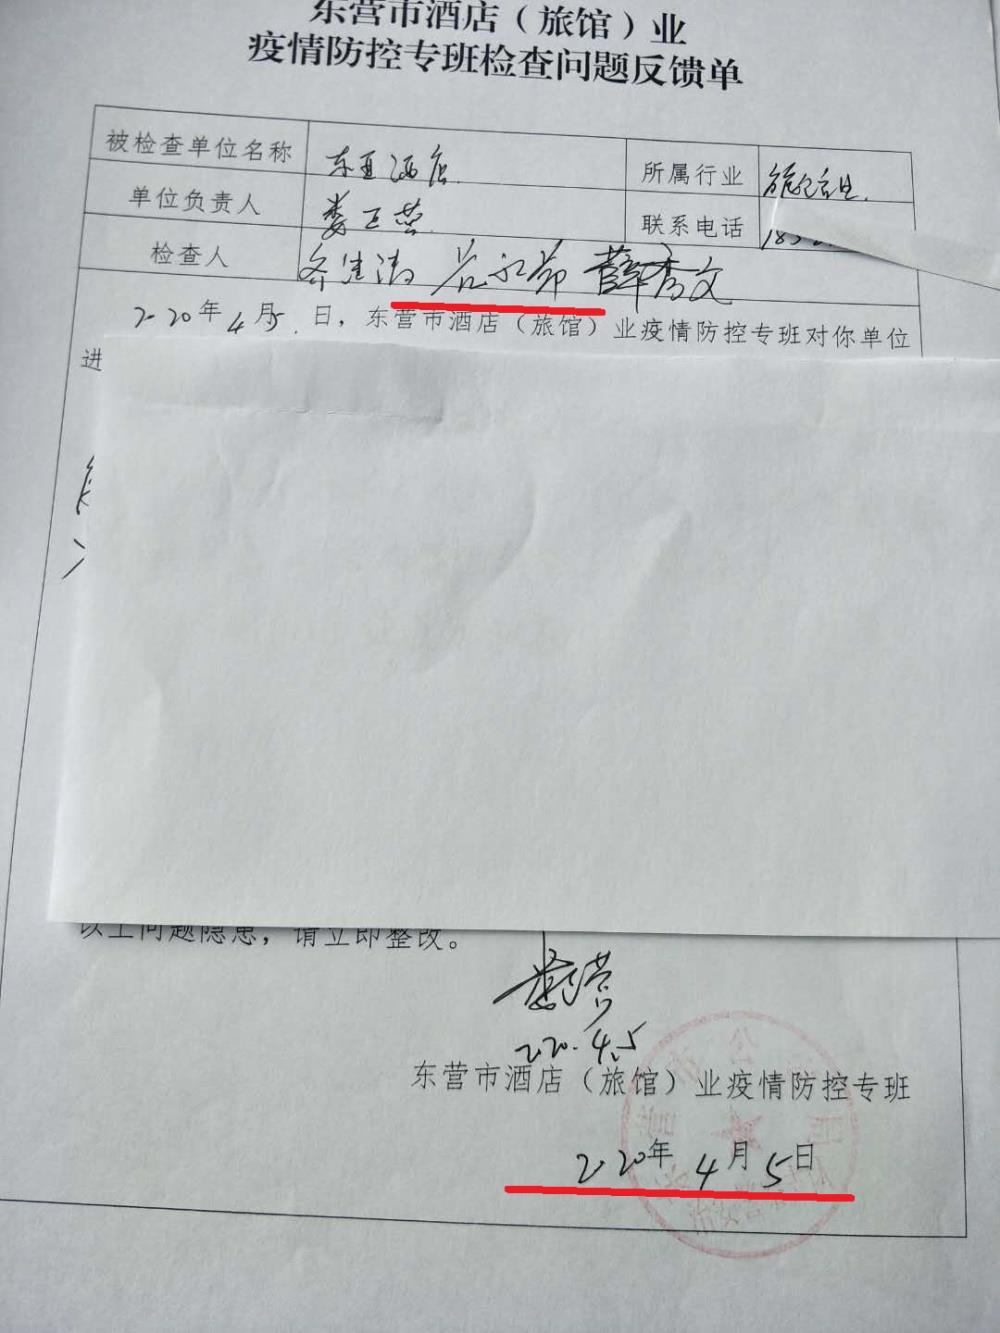 东营市酒店（旅馆）业
疫情防控专班检查问题反馈单
被检查单位名称 东亚酒店 所属行业
单位负责人 娄正营 联系电话
检查人 薛秀文
2020年4月5日，东营市酒店（旅馆）业疫情防控专班对你单位
进
以上问题隐患，请立即整改。
2020.4.5
东营市酒店（旅馆）业疫情防控专班
2020年4月5日